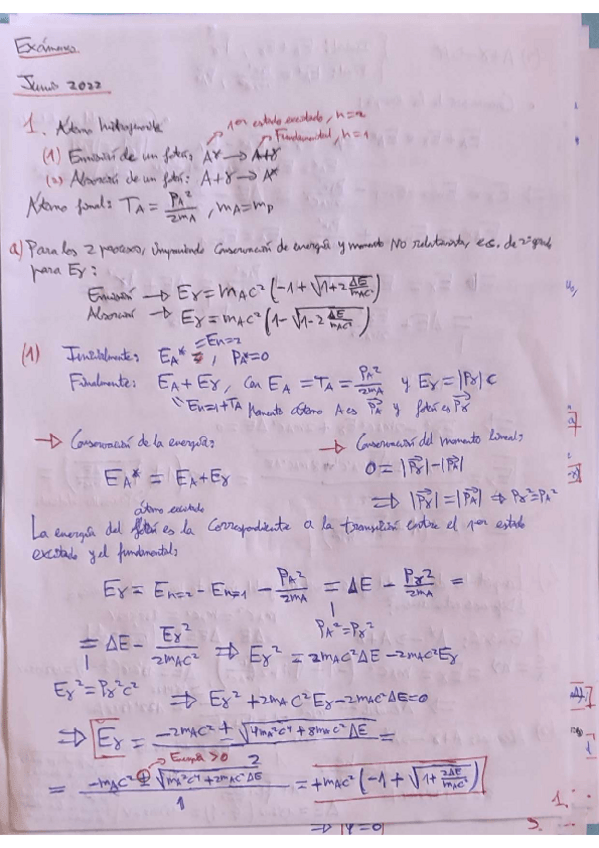 Exámenes
Junio 2022
1. Átomo hidrogenoide
1er estado excitado, n=2
Fundamental, n=1
(1) Emisión de un fotón: A* → A+γ
(2) Absorción de un fotón: A+γ → A*
Átomo final: T_A = P_A²/2m_A , m_A = m_p
a) Para los 2 procesos, imponiendo conservación de energía y momento NO relativista, ec. de 2º grado
para Eγ:
Emisión → Eγ = m_A c² (-1+√(1+2 ΔE/m_A c²))
Absorción → Eγ = m_A c² (1-√(1-2 ΔE/m_A c²))
(1) Inicialmente: E_A* = E_n=2, P_A* = 0
Finalmente: E_A + Eγ, con E_A = T_A = P_A²/2m_A y Eγ = |Pγ| c
E_n=1 + T_A Momento átomo A es P_A y fotón es Pγ
→ Conservación de la energía: → Conservación del momento lineal:
E_A* = E_A + Eγ 0 = |Pγ| - |P_A|
⇒ |Pγ| = |P_A| ⇒ Pγ² = P_A²
átomo excitado
La energía del es la correspondiente a la transición entre el 1er estado
excitado y el fundamental:
Eγ = E_n=2 - E_n=1 - P_A²/2m_A = ΔE - Pγ²/2m_A =
P_A² = Pγ²
= ΔE - Eγ²/2m_A c² ⇒ Eγ² = 2m_A c² ΔE - 2m_A c² Eγ
Eγ² = Pγ² c² ⇒ Eγ² + 2m_A c² Eγ - 2m_A c² ΔE = 0
⇒ Eγ = (-2m_A c² + √(4m_A² c⁴ + 8m_A c² ΔE))/2 =
= (-m_A c² ± √(m_A² c⁴ + 2m_A c² ΔE))/1 = +m_A c² (-1+√(1+ 2ΔE/m_A c²))
1.